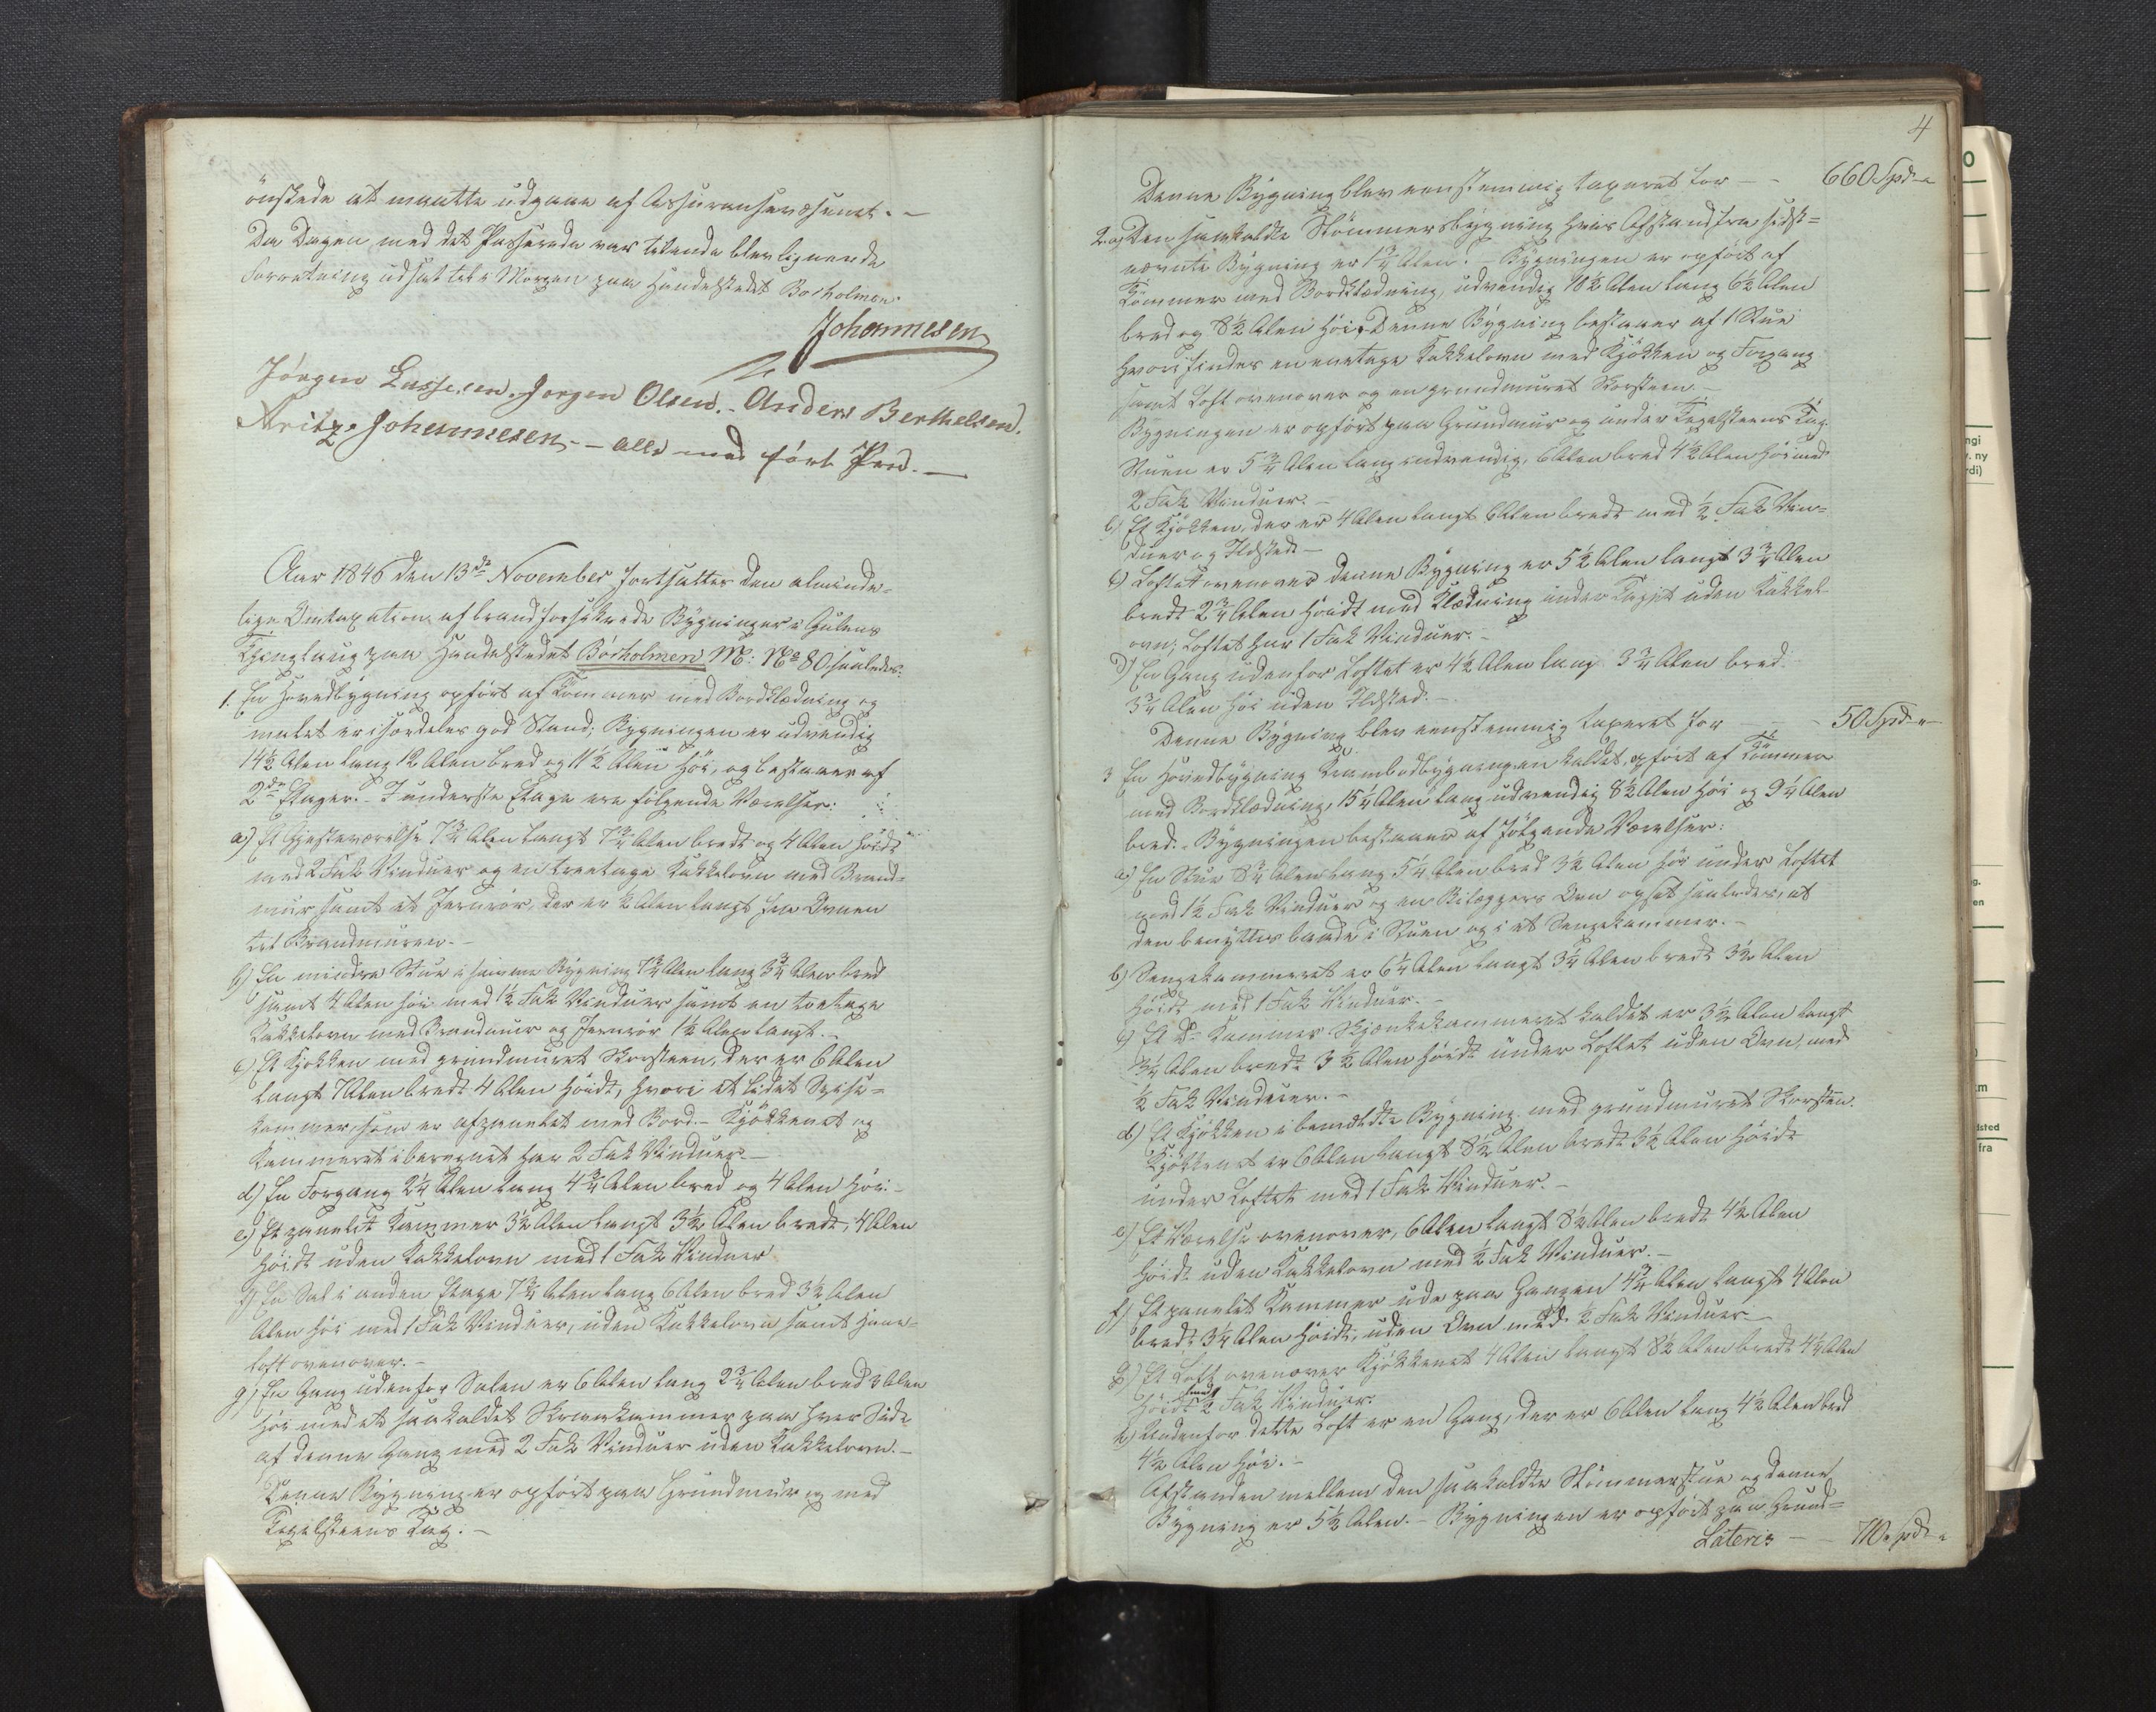 önskede at maatte udgaae af Assuranseväsenet. -
Da Dagen med det Passerede var tilende blev lignende
Forretning udsat til i Morgen paa Handelstedet Borholmen.
Johannesen
Jörgen Lassesen. Jorgen Olsen. - Anders Berthelsen.
Fritz Johannesen - alle med fört Pen. -
Aar 1846 den 13de November fortsattes den alminde-
lige Omtaxation af brandforsikrede Bygninger i Gulens
Thinglaug paa Handelstedet Börholmen M: No 80 saaledes:
1. En Hovedbygning opfört af Tömmer med Bordklædning og
malet er i særdeles god Stand; Bygningen er udvendig
14½ Alen lang 12 Alen bred og 11½ Alen höi, og bestaaer af
2de Etager. - I underste Etage ere fölgende Værelser:
a) Et Gjesteværelse 7¾ Alen langt 7¾ Alen bredt og 4 Alen höidt
med 2 Fak Vinduer og en treetages Kakkelovn med Brand-
muur samt et Jernrör, der er ½ Alen langt fra Ovnen
til Brandmuren. -
b) En mindre Stue i samme Bygning 7¾ Alen lang 3¾ Alen bred
samt 4 Alen höi med 1½ Fak Vinduer samt en toetages
Kakkelovn med Brandmur og Jernrör 1½ Alen langt. -
c) Et Kjökken med grundmuret Skorsteen, der er 6 Alen
langt 7 Alen bredt 4 Alen höidt, hvori et lidet Spise-
kammer, som er afpanelet med Bord. - Kjökkenet og
Kammeret iberegnet har 2 Fak Vinduer. -
d) En Forgang 2¼ Alen lang 4¾ Alen bred og 4 Alen höi. -
e) Et panelet Kammer 3½ Alen langt 3½ Alen bredt, 4 Alen
höidt uden Kakkelovn med 1 Fak Vinduer
f) En Sal i anden Etage 7¾ Alen lang 6 Alen bred 3½ Alen
Alen höi med 1 Fak Vinduer, uden Kakkelovn samt Hane-
loft ovenover. -
g) En Gang udenfor Salen er 6 Alen lang 2¾ Alen bred 3 Alen
höi med et saakaldet Skraakammer paa hver Side
af denne Gang med 2 Fak Vinduer uden Kakkelovn. -
Denne Bygning er opfört paa Grundmur og med
Tegelsteens Tag. -
4
Denne Bygning blev eenstemmig taxeret for - - 660 Spd -"-
2. a) Den saakaldte Stömmersbygning hvis Afstand fra sidst-
nævnte Bygning er 1¾ Alen. - Bygningen er opfört af
Tömmer med Bordklædning, udvendig 10½ Alen lang 6½ Alen
bred og 8½ Alen höi. Denne Bygning bestaaer af 1 Stue
hvori findes en eenetage Kakkelovn med Kjökken og Forgang
samt Loft ovenover og en grundmuret Skorsteen. -
Bygningen er opfört paa Grundmur og under Tegelsteens Tag.
Stuen er 5¾ Alen lang indvendig, 6 Alen bred 4½ Alen höi med
2 Fak Vinduer. -
b) Et Kjökken, der er 4 Alen langt 6 Alen bredt med ½ Fak Vin-
duer og Ildsted -
c) Loftet ovenover denne Bygning er 5½ Alen langt 3¾ Alen
bredt 2¾ Alen höidt med Klædning under Taget uden Kakkel-
ovn; Loftet har 1 Fak Vinduer. -
d) En Gang udenfor Loftet er 4½ Alen lang 3¾ Alen bred
3¾ Alen höi uden Ildsted. -
Denne Bygning blev eenstemmig taxeret for - - - 50 Spd -"-
3 En Hovedbygning Krambodbygningen kaldet, opfört af Tömmer
med Bordklædning, 15¼ Alen lang udvendig 8½ Alen höi og 9¼ Alen
bred. - Bygningen bestaaer af fölgende Værelser:
a) En Stue 8¼ Alen lang 5¼ Alen bred 3½ Alen höi under Loftet
med 1½ Fak Vinduer og en Bilæggers Ovn opsat saaledes, at
den benyttes baade i Stuen og i et Sengekammer. -
b) Sengekammeret er 6¼ Alen langt 3¼ Alen bredt 3½ Alen
höidt med 1 Fak Vinduer. -
c) Et do Kammer Skjænkekammeret kaldet er 3½ Alen langt
3¼ Alen bredt 3½ Alen höidt under Loftet uden Ovn, med
½ Fak Vinduer. -
d) Et Kjökken i bemeldte Bygning med grundmuret Skorsten.
Kjökkenet er 6 Alen langt 8½ Alen bredt 3½ Alen höidt
under Loftet med 1 Fak Vinduer. -
e) Et Værelse ovenover, 6 Alen langt 8½ Alen bredt 4½ Alen
höidt uden Kakkelovn med ½ Fak Vinduer. -
f) Et panelet Kammer ude paa Gangen 4¾ Alen langt 4 Alen
bredt 3¼ Alen höidt, uden Ovn med ½ Fak Vinduer. -
g) Et Loft ovenover Kjökkenet 4 Alen langt 8½ Alen bredt 4½ Alen
höidt med ½ Fak Vinduer.
h) Udenfor dette Loft er en Gang, der er 6 Alen lang 4½ Alen bred
4½ Alen höi. -
Afstanden mellem den saakaldte Stömmerstue og denne
Bygning er 5½ Alen. - Bygningen er opfört paa Grund-
Lateris - - 710 Spd -"-